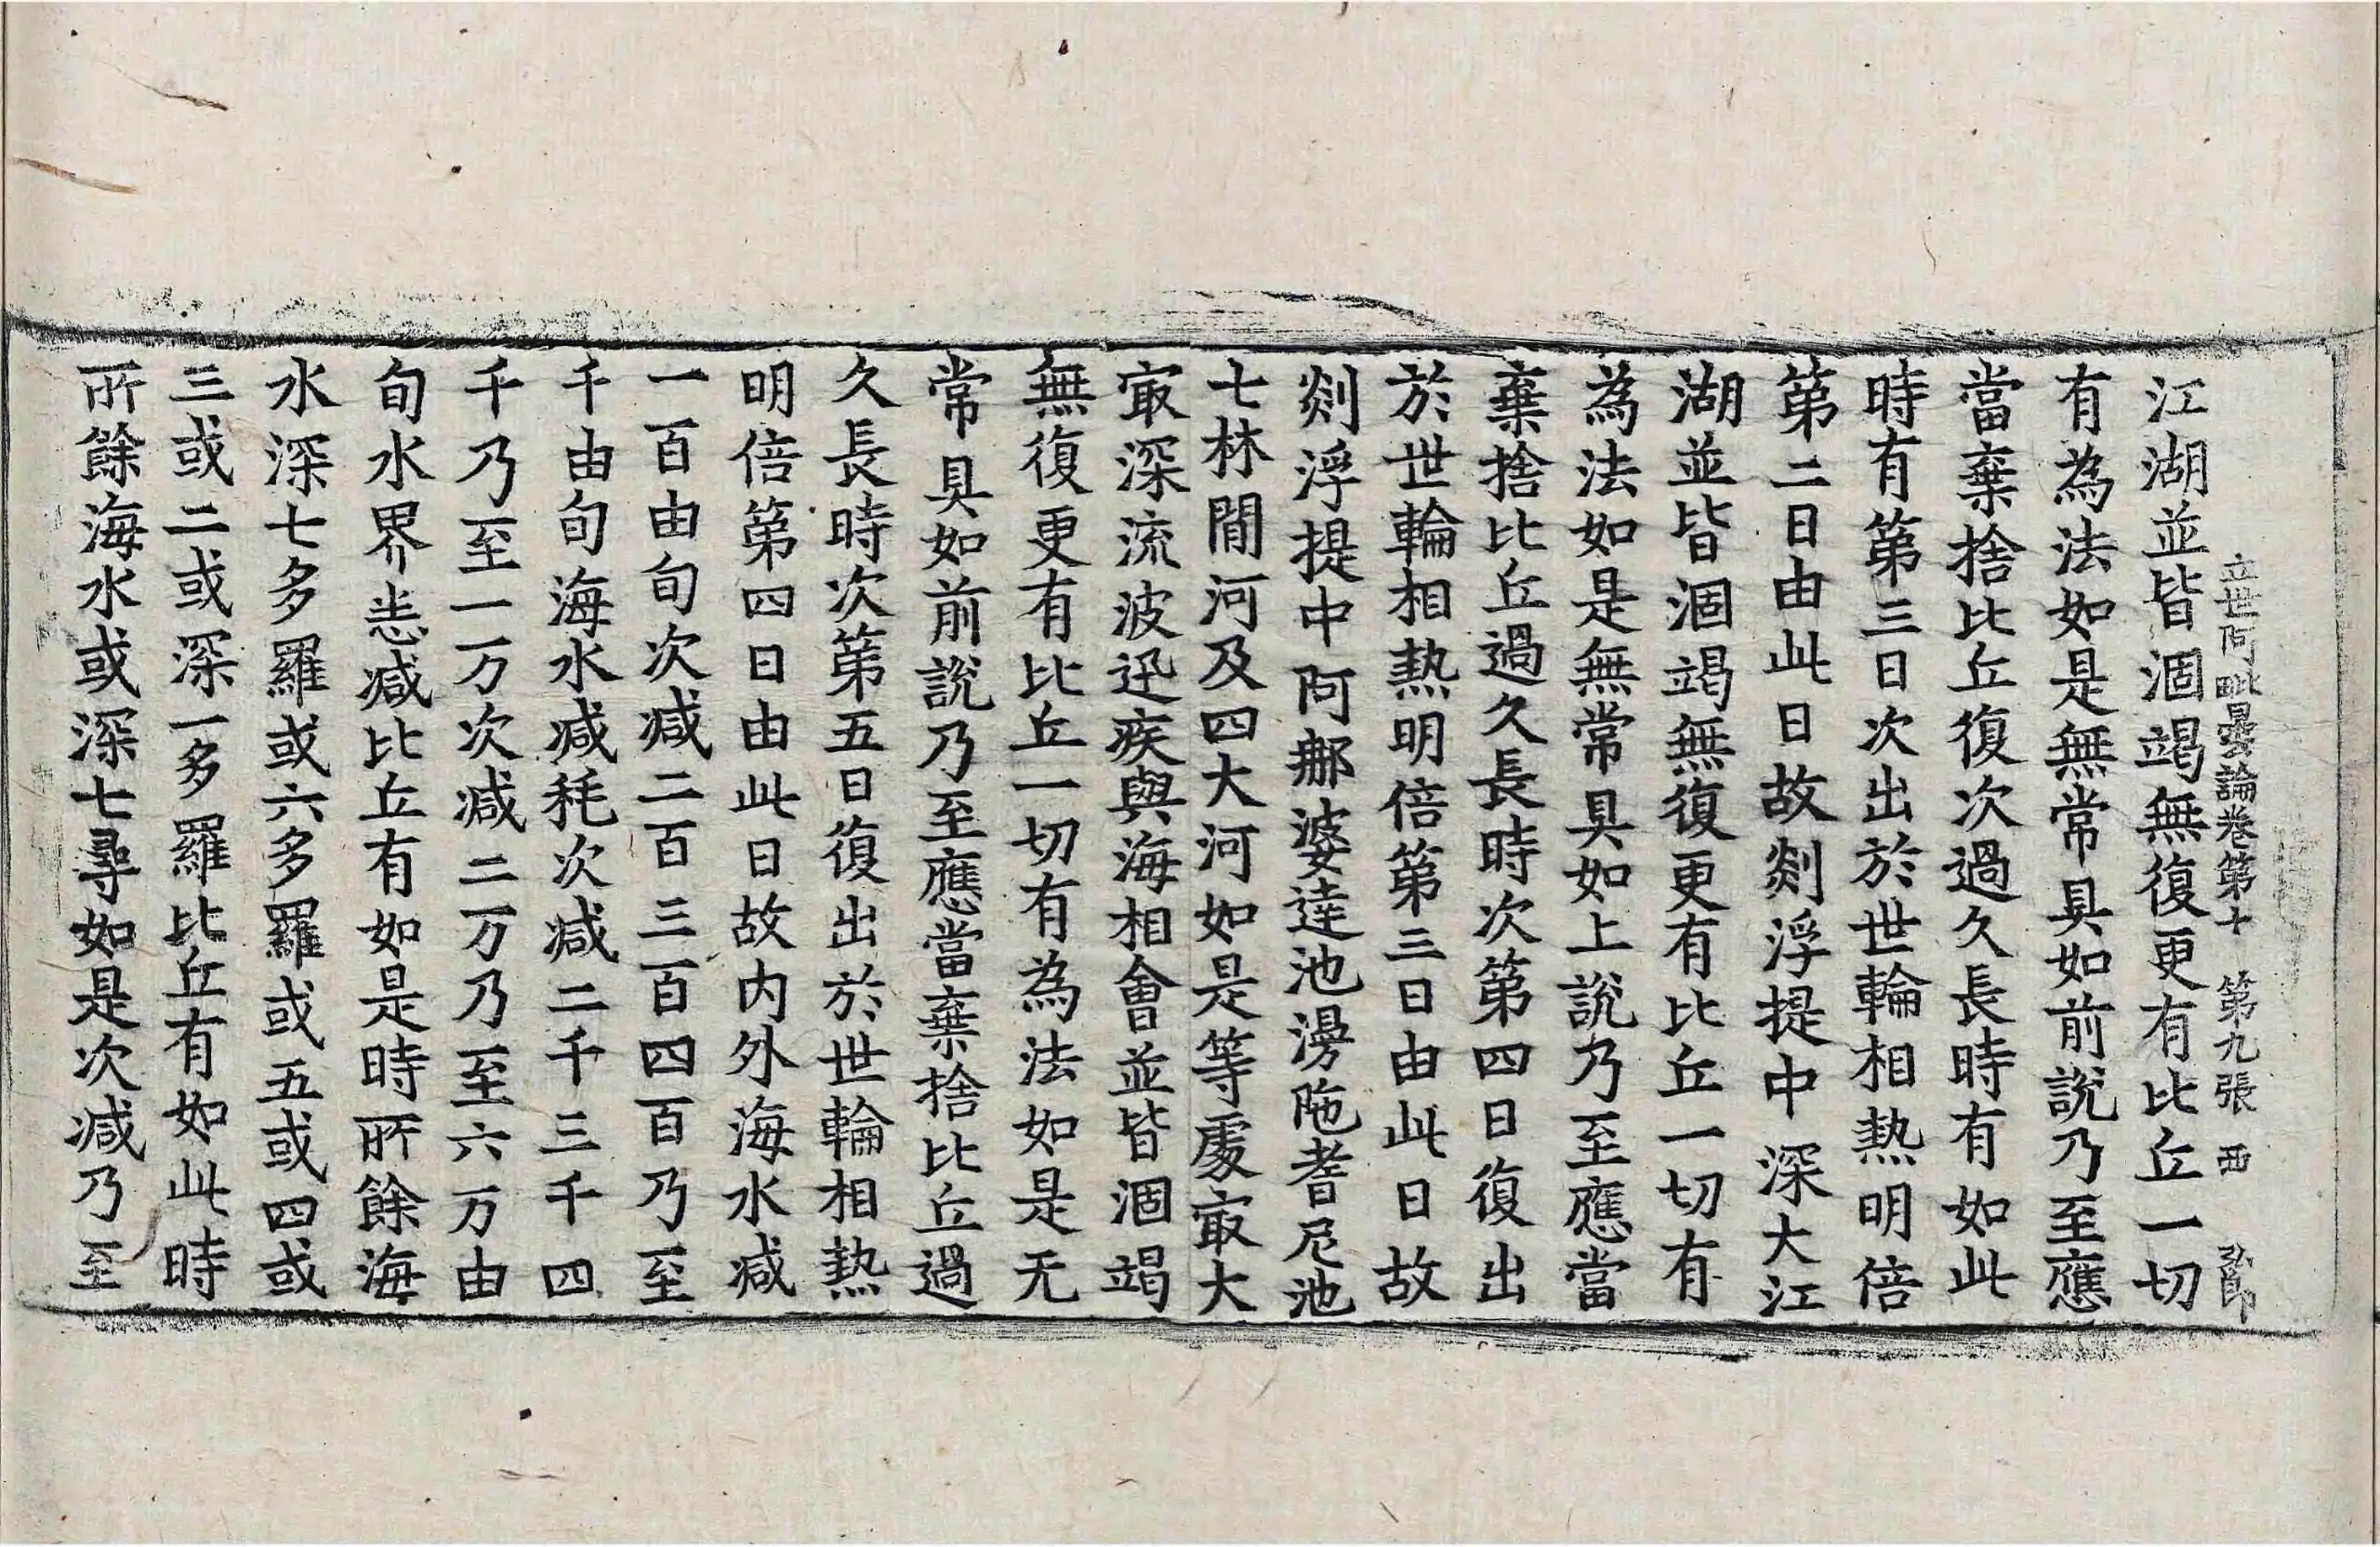 立世阿毗曇論卷第十 第九張 西
江湖並皆涸竭無復更有比丘一切
有為法如是無常具如前說乃至應
當棄捨比丘復次過久長時有如此
時有第三日次出於世輪相熱明倍
第二日由此日故剡浮提中深大江
湖並皆涸竭無復更有比丘一切有
為法如是無常具如上說乃至應當
棄捨比丘過久長時次第四日復出
於世輪相熱明倍第三日由此日故
剡浮提中阿那婆達池漫陁耆尼池
七林間河及四大河如是等處㝡大
㝡深流波迅疾與海相會並皆涸竭
無復更有比丘一切有為法如是无
常具如前說乃至應當棄捨比丘過
久長時次第五日復出於世輪相熱
明倍第四日由此日故内外海水减
一百由旬次减二百三百四百乃至
千由旬海水减耗次减二千三千四
千乃至一万次减二万乃至六万由
旬水界悉减比丘有如是時所餘海
水深七多羅或六多羅或五或四或
三或二或深一多羅比丘有如此時
所餘海水或深七尋如是次减乃至